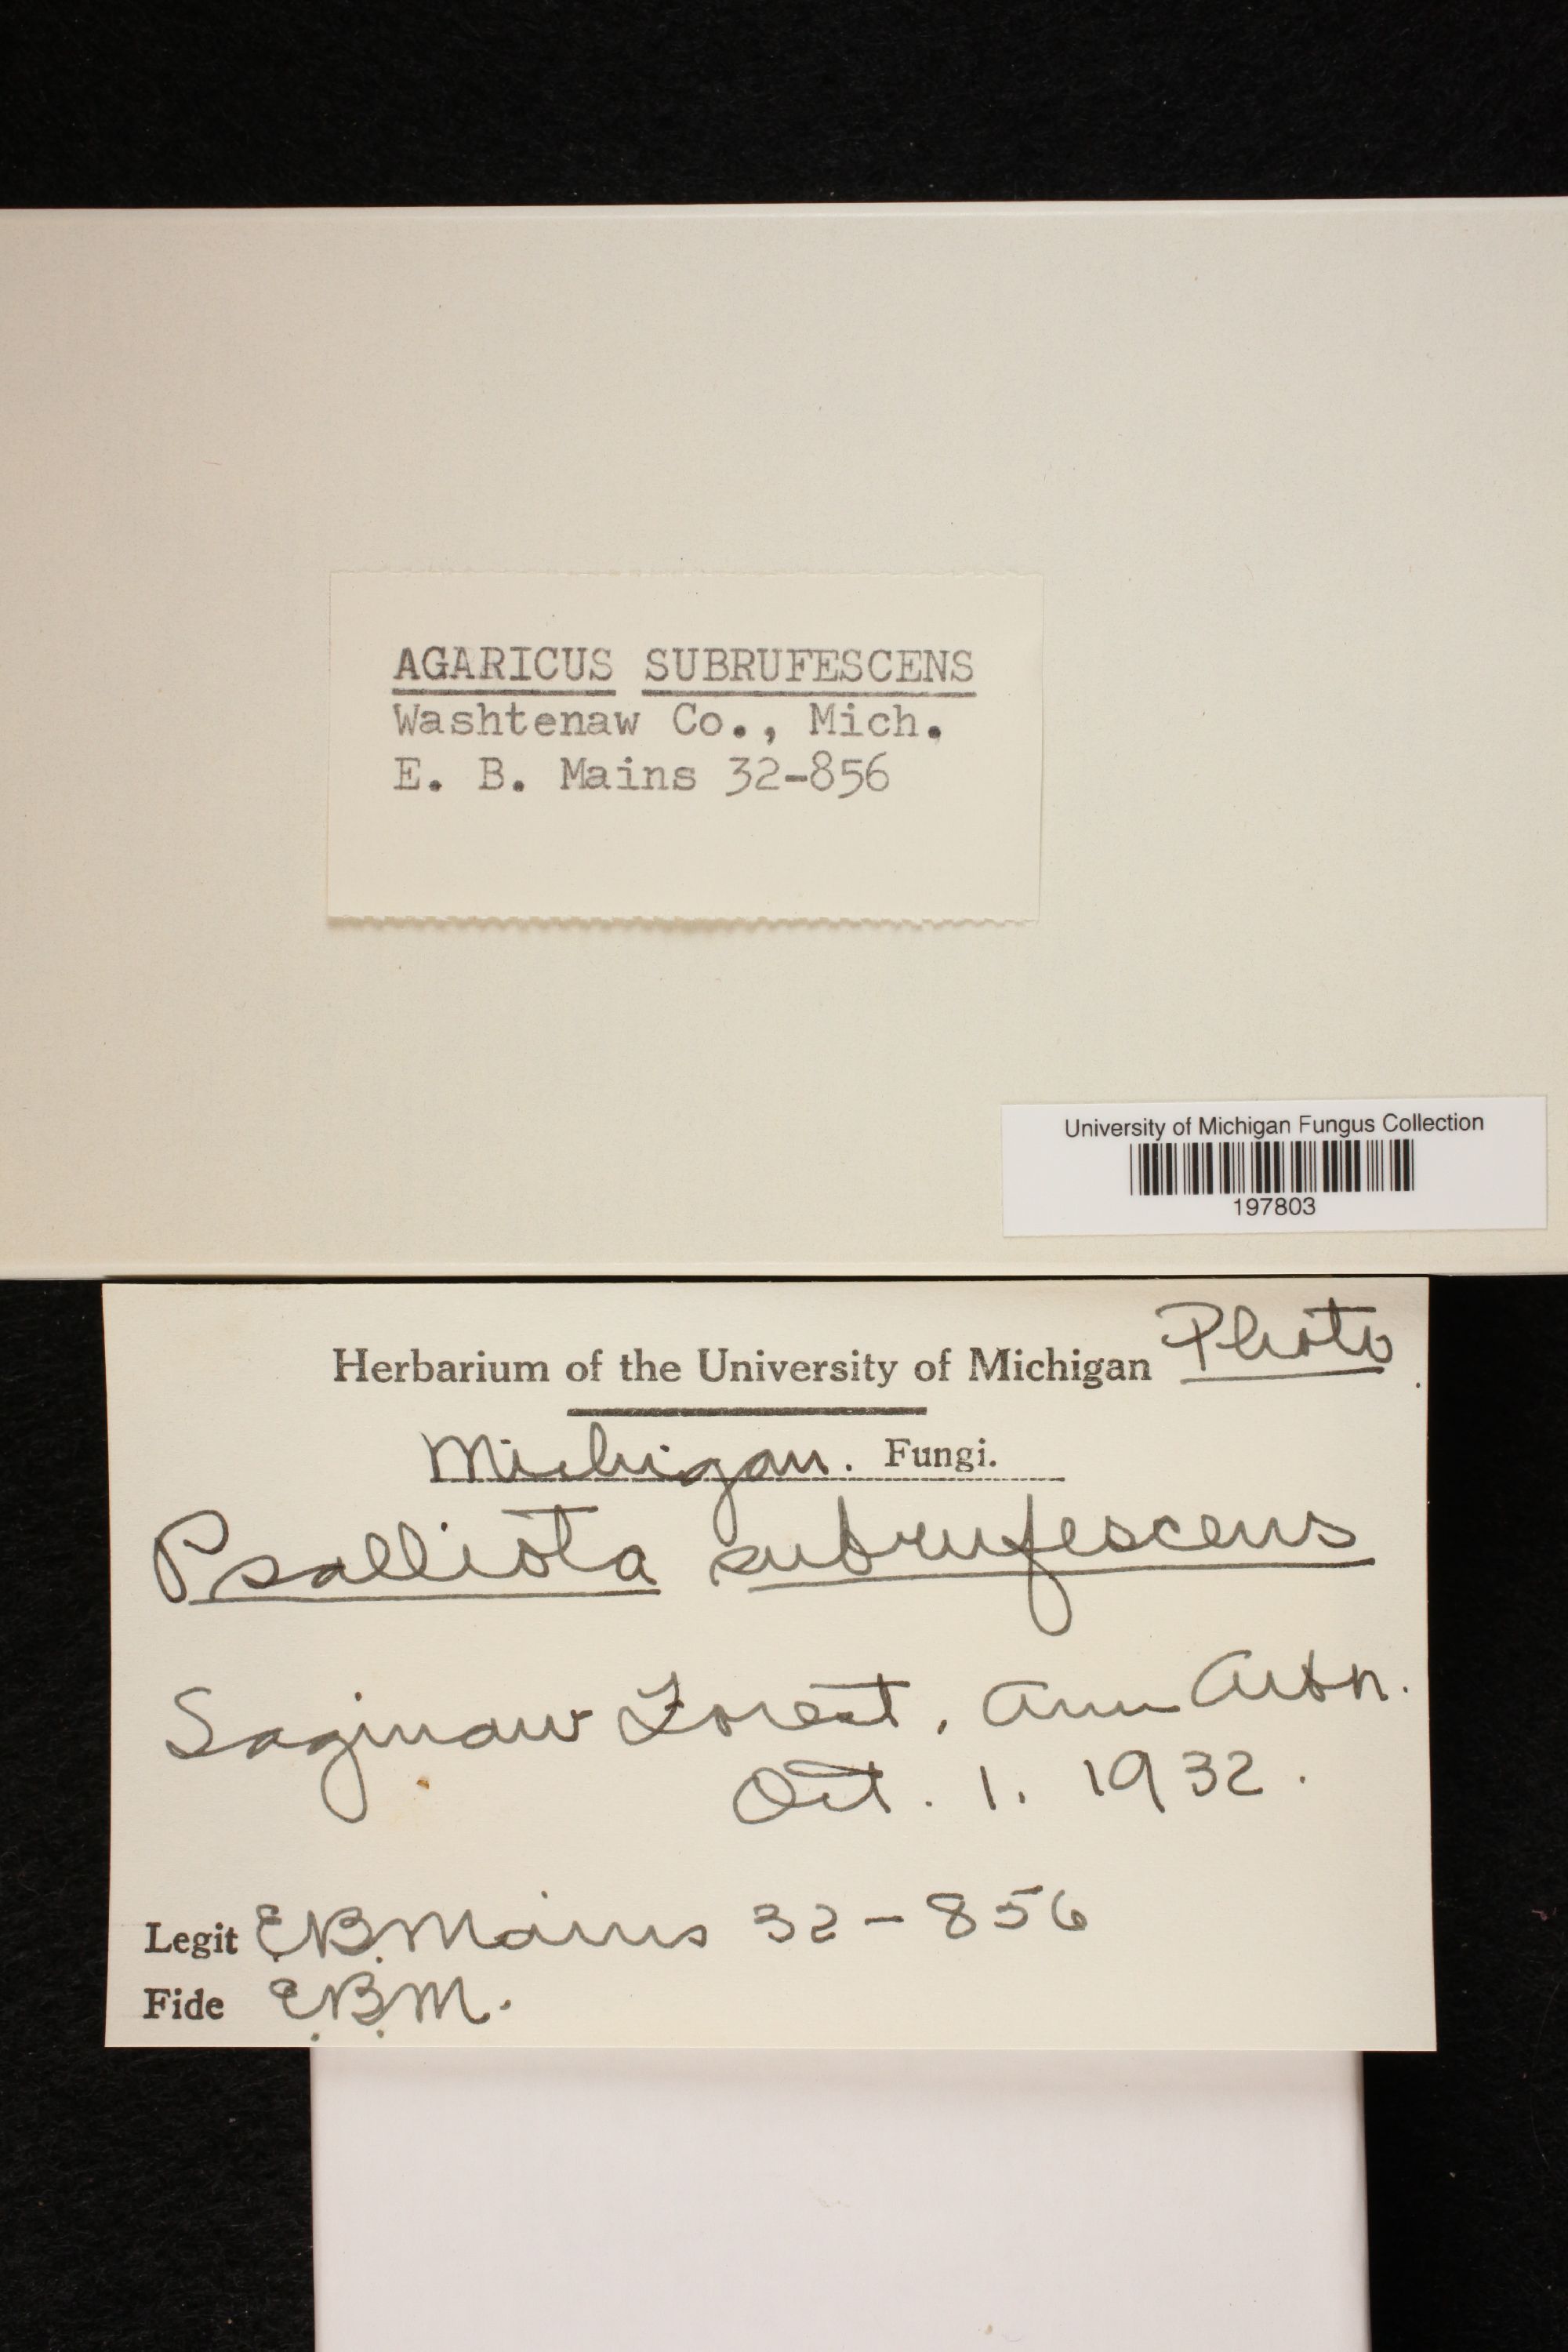 AGARICUS SUBRUFESCENS
Washtenaw Co., Mich.
E. B. Mains 32-856
University of Michigan Fungus Collection
197803
Photo
Herbarium of the University of Michigan
Michigan. Fungi.
Psalliota subrufescens
Saginaw Forest, Ann Arbr.
Oct. 1. 1932.
Legit E.B. Mains 32-856
Fide E.B.M.